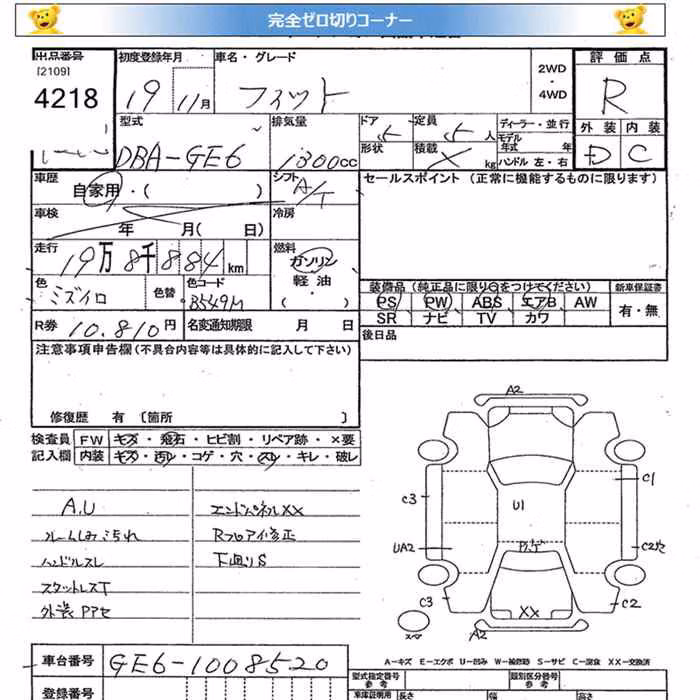 完全ゼロ切りコーナー
出品番号 初度登録年月 車名・グレード 評価点
[2109]
4218 19 11月 フィット 2WD ・ 4WD R
型式 排気量 ドア 定員 ディーラー・並行 外装 内装
DBA-GE6 1300cc 5 5人 モデル年式 年 D C
形状 積載 kg ハンドル 左・右
車歴 自家用・( ) シフト A/T セールスポイント (正常に機能するものに限ります)
車検 年 月( 日) 冷房
走行 19万8千884km 燃料 ガソリン 軽油 ・( )
色 ミズイロ 色替 色コード B549M
装備品 (純正品に限り○をつけてください) 新車保証書
PS PW ABS エアB AW 有・無
SR ナビ TV カワ
R券 10.810円 名変通知期限 月 日 後日品
注意事項申告欄(不具合内容等は具体的に記入して下さい)
修復歴 有 〔箇所 〕
検査員 FW キズ・飛石・ヒビ割・リペア跡・×要
記入欄 内装 キズ・汚レ・コゲ・穴・スレ・キレ・破レ
A.U エンドパネルXX
ルームしみ汚れ Rフロア修正
ハンドルスレ 下廻りS
スタットレスT
外装Pアセ
A2
C3 C1
U1
UA2 C2
C3 C2
XX
A2
A-キズ E-エクボ U-凹み W-補修跡 S-サビ C-腐食 XX-交換済
車台番号 GE6-1008520 型式指定番号 参考 類別区分番号 参考
登録番号 車庫証明用 長さ 幅 高さ